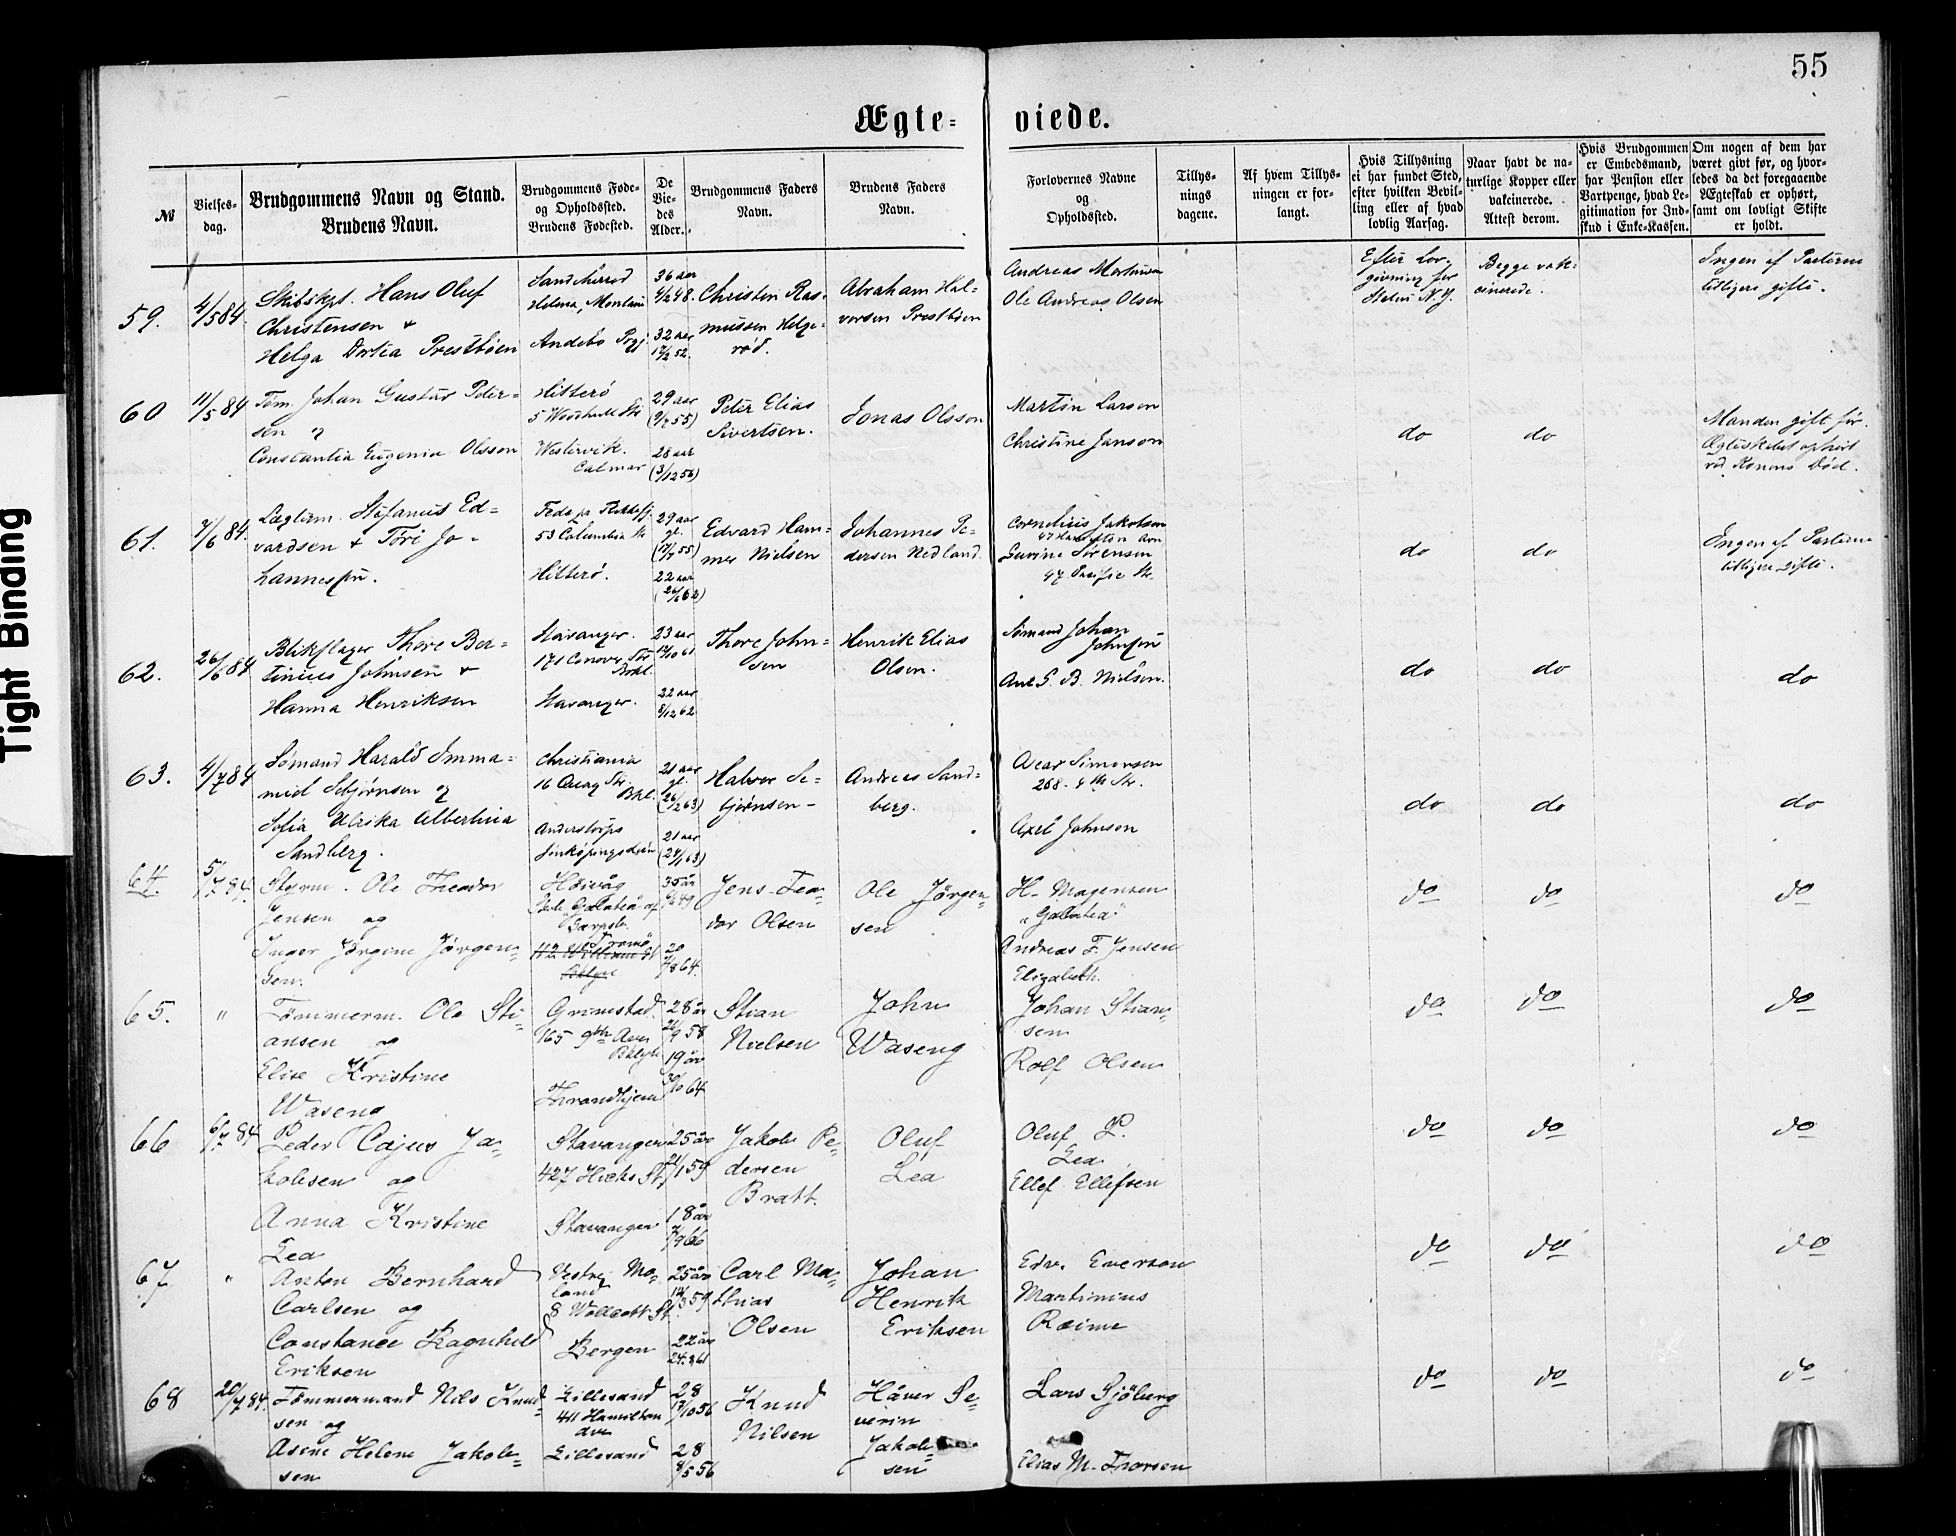 55
Ægte= viede.
№
Vielses-
dag.
Brudgommens Navn og Stand.
Brudens Navn.
Brudgommens Føde-
og Opholdssted.
Brudens Fødested.
De
Vie-
des
Alder.
Brudgommens Faders
Navn.
Brudens Faders
Navn.
Forlovernes Navne
og
Opholdssted.
Tillys-
nings
dagene.
Af hvem Tillys-
ningen er for-
langt.
Hvis Tillysning
ei har fundet Sted,
efter hvilken Bevil-
ling eller af hvad
lovlig Aarsag.
Naar havt de na-
turlige Kopper eller
vakcinerede.
Attest derom.
Hvis Brudgommen
er Embedsmand,
har Pension eller
Vartpenge, hvad Le-
gitimation for Ind-
skud i Enke-Kassen.
Om nogen af dem har
været givt før, og hvor-
ledes da det foregaaende
Ægteskab er ophørt,
samt om lovligt Skifte
er holdt.
59.
4/5 84.
Skibskpt. Hans Oluf
Christensen +
Helga Dortia Prestbøen
Sandehered
Andebo Prgj.
36 aar
4/2 48.
32 aar
17/2 52.
Christen Ras=
mussen Helge=
rød.
Abraham Hal=
vorsen Prestbøen
Andreas Mortensen
Ole Andreas Olsen
Efter Lov=
givning for
Staten N.Y.
Begge vak=
cinerede.
Ingen af Parterne
tidligere gifte.
60
11/5 84
Tøm. Johan Gustav Peter=
sen og
Constantia Eugenia Olsson
Hitterø
5 Woodhull Str
Westervik.
Calmar
29 aar
(9/2 55)
28 aar
(3/12 56)
Peter Elias
Sivertsen.
Jonas Olsson
Martin Larson
Christine Janson
do
do
Manden gift før.
Ægteskabet ophørt
ved Konens Død.
61.
7/6 84.
Lægterm. Stefanus Ed=
vardsen + Tori Jo=
hannessen.
53 Columbia Str
Hitterø.
29 aar
gl.
(17/7 55)
22 aar
(26/6 62)
Edvard Ham=
mer Nielsen
Johannes Pe=
dersen Nedland.
Cornelius Jakobsen
47 Hamilton Avn
Gurine Sørensen
47 Pacific Str.
do
do
Ingen af Parterne
tidligere gifte.
62.
26/6 84
Blikslager Thore Ber=
tinius Johnsen +
Hanna Henriksen
Stavanger.
171 Conover Str
Brkl.
Stavanger.
23 aar
17/10 61
22 aar
8/12 62
Thore John=
sen
Henrik Elias
Olsen.
Sømand Johan
Johnsen
Axel S. B. Nielsen.
do
do
do
63.
4/7 84
Sømand Harald Imma=
niel Sebjørnsen og
Sofia Ulrika Albertina
Sandberg.
Christiania
16 Quay Str.
Bkl.
Anderstorps
Jønkøpings Leen
21 aar
gl.
(26/2 63)
21 aar
(24/1 63)
Halvor Se=
bjørnsen-
Andreas Sand=
berg.
Oscar Simonsen
268. 4th Str.
Axel Johnson
do
do
do
64.
5/7 84.
Styrm. Ole Theodor
Jensen og
Inger Jørgine Jørgen=
sen.
Høivåg
Skib "Galatea" af
Sarpsb.
Tromø
112 William St
Bklyn
35 år
20
7/8 64.
Jens Teo=
dor Olsen
Ole Jørgen=
sen
H. Mogensen
"Galatea"
Andreas F. Jensen
Elizabeth.
do
do
do
65.
"
Tømmerm. Ole Sti=
ansen og
Elise Kristine
Waseng
Grimstad.
165 9th Ave.
Bklyn
Throndhjem
28 år
26/9 58
19 år
30/10 64
Stian
Nielsen
John
Waseng
Johan Stian=
sen
Rolf Olsen
do
do
do
66
6/7 84
Peder Cajus Ja=
kobsen og
Anna Kristine
Lea
Stavanger
427 Hicks St.
Stavanger
25 år
21/1 59
18 år
7/9 66
Jakob Pe=
dersen
Bratt.
Oluf
Lea
Oluf L.
Lea
Ellef Ellefsen
do
do
do
67
"
Anton Bernhard
Carlsen og
Constance Ragnhild
Eriksen
Vestre Mo=
land
8 Wollcott St.
Bergen
25 år
14/3 59
22 år
24.2 61
Carl Ma=
thias
Olsen
Johan
Henrik
Eriksen
Edv. Everson
Martinius
Reime
do
do
do
68
20/7 84.
Tømmermand Nils Knud=
sen og
Asine Helene Jakob=
sen
Lillesand
411 Hamilton
Ave
Lillesand
28
17/10 56
28
8/5 56
Knud
Nilsen
Håver Se=
verin
Jakob=
sen
Lars Sjöberg
Elias M. Thorsen
do
do
do
Tight Binding